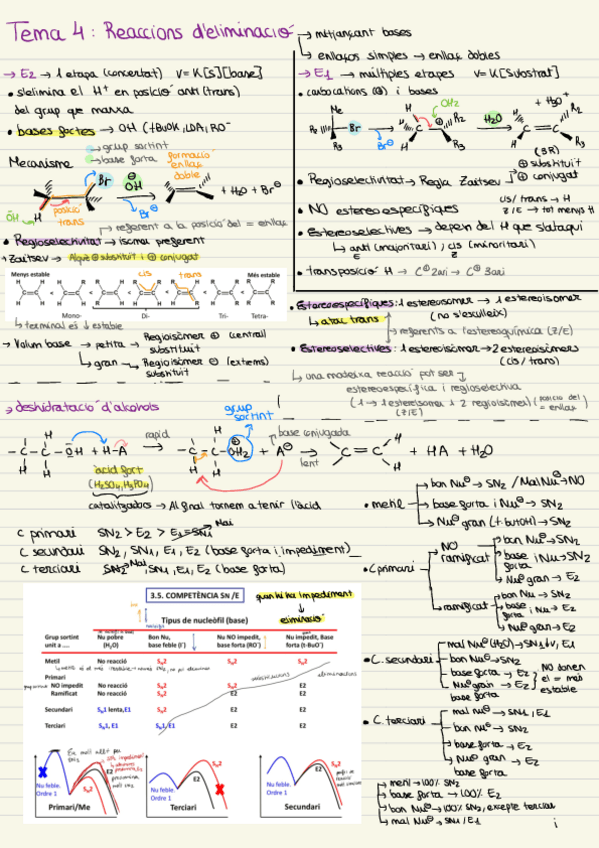 Tema 4: Reaccions d'eliminació → mitjançant bases
↳ enllaços simples → enllaç dobles
→ E2 → 1 etapa (concertat) V=K[S][base]
• s'elimina el H+ en posició anti (trans)
del grup que marxa
• bases fortes → OH (tBuOK, LDA, RO-
→ grup sortint
→ base forta
Mecanisme
formació enllaç doble
Br
OH
+ H2O + Br⊖
posició trans
Br⊖
ÖH
H
→ referent a la posició del = enllaç
• Regioselectivitat → isòmer preferent
→ Zaitsev → Alquè ⊕ substituit i ⊕ conjugat
cis
trans
Menys estable
Més estable
Mono-
Di-
Tri-
Tetra-
↳ terminal és ↓ estable
→ Volum base → petita → Regioisòmer ⊕ (central)
substituit
↳ gran → Regioisòmer ⊖ (extems)
substituit
→ E1 → múltiples etapes V=K[Substrat]
• carbocations (⊕) i bases
Me
R2
Br
R3
Br⊖
OH2
H
H2O
+ H3O+
(3R)
⊕ substituit
⊕ conjugat
• Regioselectivitat → Regla Zaitsev
• NO estereoespecífiques
cis/trans → H
Z/E → tot menys H
• Estereoselectives → depèn del H que s'ataqui
↳ anti (majoritari), cis (minoritari)
E
Z
• transposició H → C⊕ 2ari → C⊕ 3ari
• Estereoespecífiques: 1 estereoisomer → 1 estereoisomer
↳ atac trans
(no s'escull eix)
→ referents a l'estereoquímica (Z/E)
• Estereoselectives: 1 estereoisòmer → 2 estereoisòmers
(cis/trans)
↳ una mateixa reacció pot ser
estereoespecífica i regioselectiva
(1 → 1 estereoisomer i 2 regioisòmers) (posició del = enllaç)
(Z/E)
→ deshidratació d'alcohols
grup sortint
base conjugada
ràpid
lent
-C-C-ÖH + H-A → -C-C-OH2 + A⊖ → C=C + HA + H2O
àcid fort
(H2SO4, H3PO4)
catalitzadors → Al final tornem a tenir l'àcid
C primari SN2 > E2 > E1=SN1 Mai
C secundari SN2, SN1, E1, E2 (base forta i impediment)
C terciari SN2 Mai SN1, E1, E2 (base forta)
3.5. COMPETÈNCIA SN /E
quan hi ha impediment
↓
eliminació
Tipus de nucleòfil (base)
Grup sortint unit a .... Nu pobre (H2O) Bon Nu, base feble (I-) Nu NO impedit, base forta (RO-) Nu impedit, Base forta (t-BuO-)
Metil No reacció SN2 SN2 SN2
Primari
NO impedit No reacció SN2 SN2 E2
Ramificat No reacció SN2 E2 E2
Secundari SN1 lenta,E1 SN2 E2 E2
Terciari SN1, E1 SN1, E1 E2 E2
substitucions
eliminacions
Nu feble. Ordre 1
SN2
E2
Primari/Me
Nu feble. Ordre 1
E2
SN2
Terciari
Nu feble. Ordre 1
SN2
E2
Secundari
• metil
→ bon Nu⊖ → SN2 / Mal Nu → NO
→ base forta i Nu⊖ → SN2
→ Nu⊖ gran (t-butOH) → SN2
• C primari
NO ramificat
bon Nu⊖ → SN2
base i Nu → SN2
forta
Nu⊖ gran → E2
ramificat
bon Nu → SN2
base i Nu → E2
forta
Nu⊖ gran → E2
• C. secundari
mal Nu⊖ (H2O) → SN1↓v, E1
bon Nu⊖ → SN2
base forta → E2
Nu⊖ gran → E2
base forta
NO donen el = més estable
• C. terciari
mal nu⊖ → SN1, E1
bon nu⊖ → SN2
base forta → E2
Nu⊖ gran → E2
base forta
→ metil → 100% SN2
→ base forta → 100% E2
→ bon Nu⊖ → 100% SN2, excepte terciari
→ mal Nu⊖ → SN1 / E1